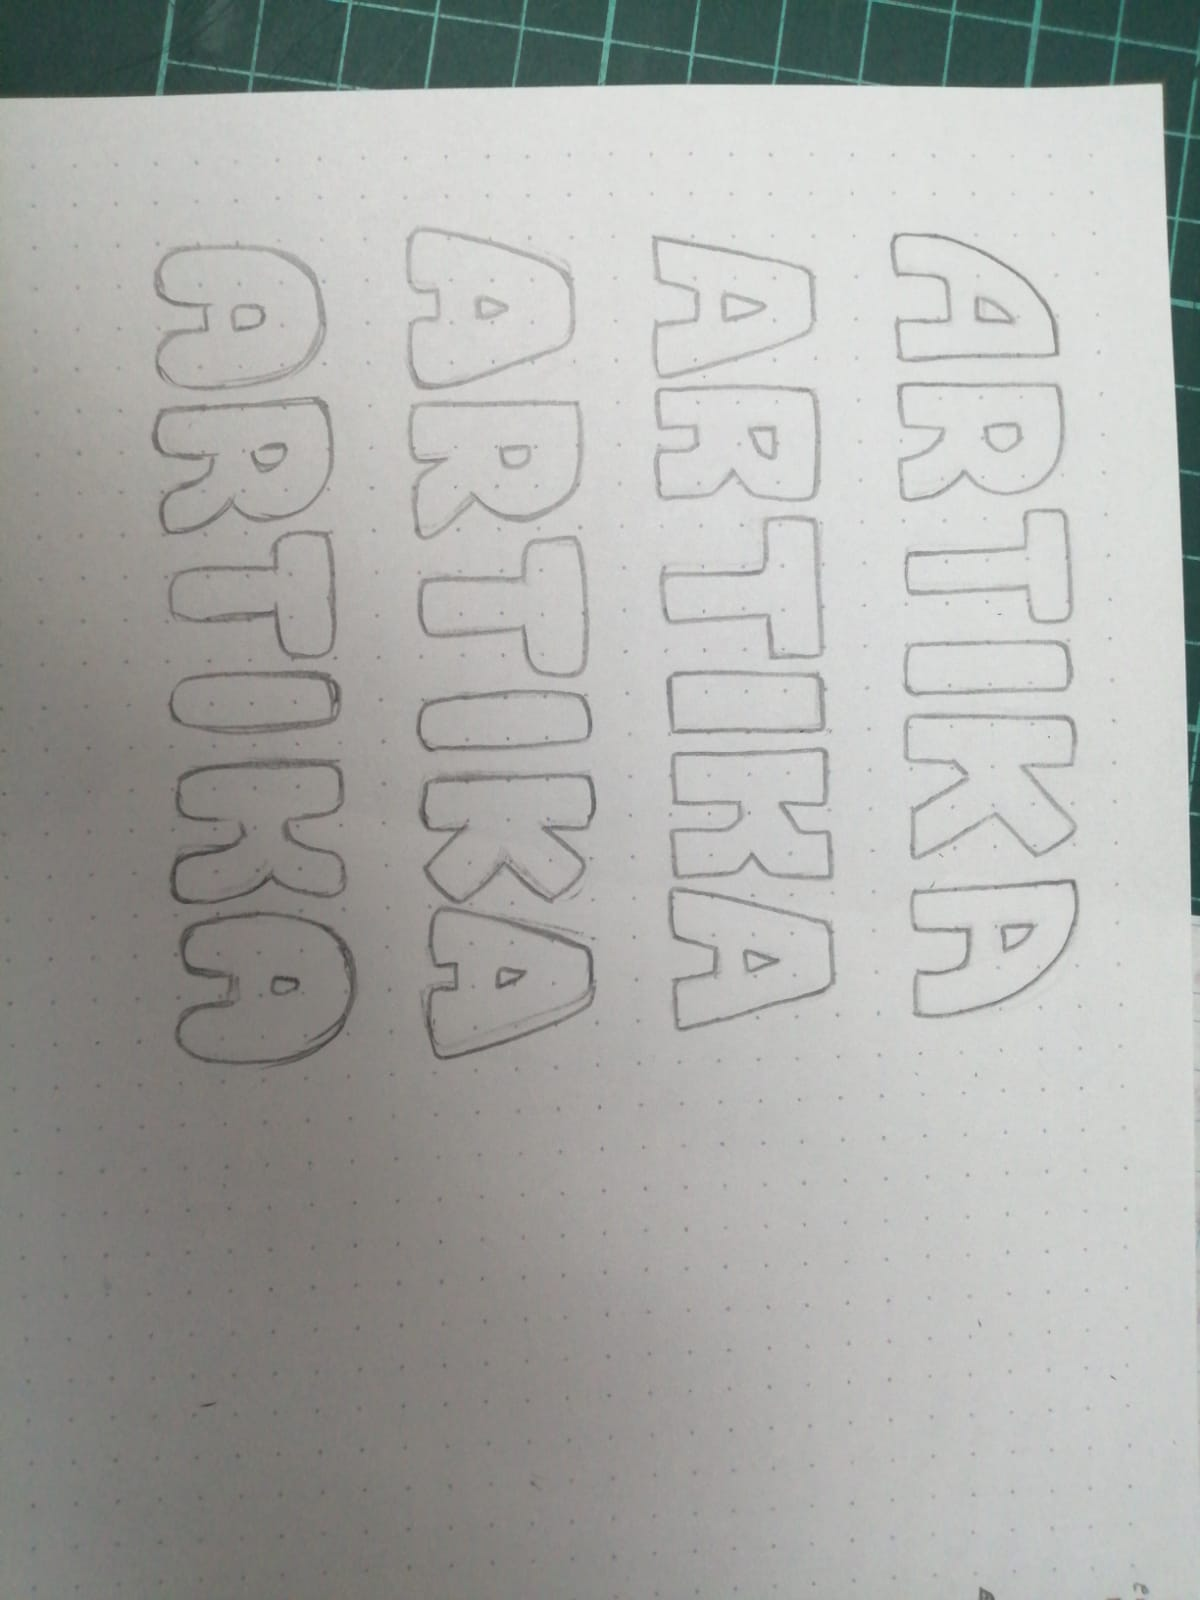 ARTIKA
ARTIKA
ARTIKA
ARTIKA